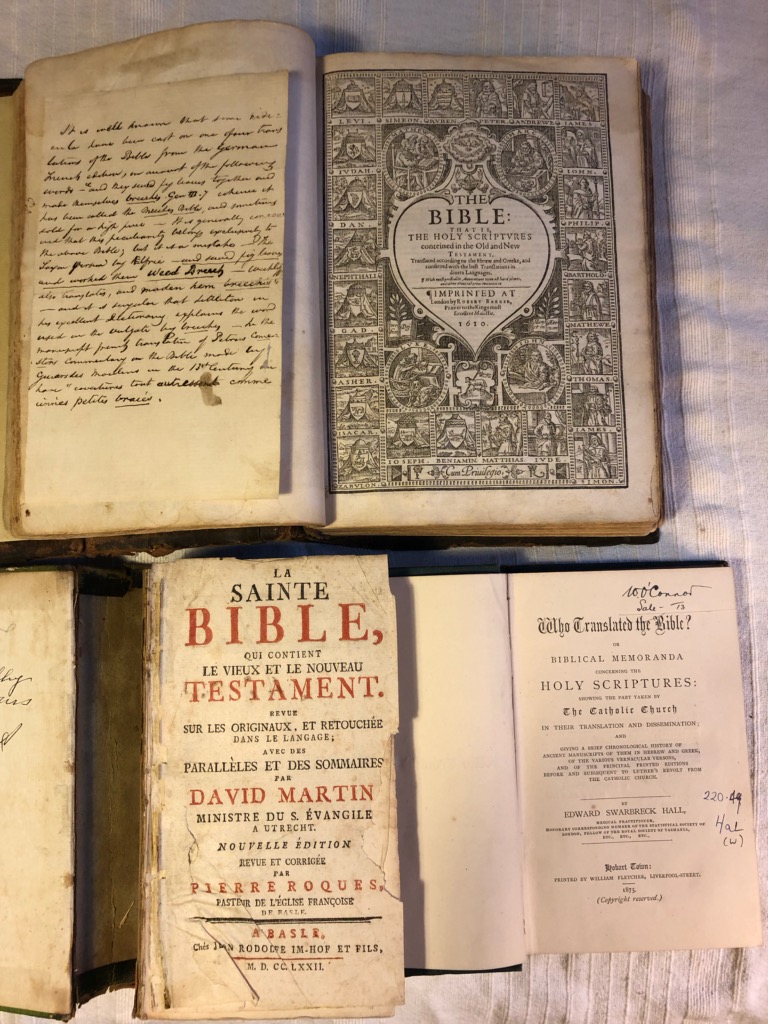 It is well known that some ridi=
cule have been cast on one of our trans
lations of the Bibles from the German
French edition, on account of the following
words "and they sewed fig leaves together and
made themselves breeches, Gen III. 7 whence it
has been called the Breeches Bible, and sometimes
sold for a high price — It is generally
that this peculiarity belongs exclusively to
the above Bible; but it is a mistake — The
and sewed fig leaves
and worked them Weed Breech
also translates, and maden hem breechis
— and it is singular that Littleton in
his excellent Dictionary explains the word
used in the vulgate by breeches — In the
manuscript french translation of Petrus Come
stors commentary on the Bible made by
Guiardes Moulens in the 13th Century we
have "couvertures tout autressent comme
unnes petites braies.
LEVI. SIMEON. RVBEN. PETER. ANDREWE. IAMES.
IVDAH.
IOHN.
DAN.
PHILIP.
NEPHTHALI
BARTHOL.
GAD.
MATHEWE
ASHER.
THOMAS.
ISACAR.
IAMES.
IOSEPH. BENIAMIN. MATTHIAS. IVDE.
ZABVLON.
SIMON.
THE
BIBLE:
THAT IS,
THE HOLY SCRIPTVRES
conteined in the Old and New
TESTAMENT.
Translated according to the Ebrew and Greeke, and
conferred with the best Translations in
diuers Languages.
¶ IMPRINTED AT
London by ROBERT BARKER,
Printer to the Kings most
Excellent Maiestie.
1610.
Cum Priuilegio.
LA
SAINTE
BIBLE,
QUI CONTIENT
LE VIEUX ET LE NOUVEAU
TESTAMENT.
REVUE
SUR LES ORIGINAUX, ET RETOUCHÉE
DANS LE LANGAGE;
AVEC DES
PARALLÈLES ET DES SOMMAIRES
PAR
DAVID MARTIN
MINISTRE DU S. ÉVANGILE
A UTRECHT.
NOUVELLE ÉDITION
REVUE ET CORRIGÉE
PAR
PIERRE ROQUES,
PASTEUR DE L'ÉGLISE FRANÇOISE
DE BASLE.
A BASLE,
Chés JEAN RODOLFE IM-HOF ET FILS,
M. D. CC. LXXII.
W O'Connor
Sale - 73
Who Translated the Bible?
OR
BIBLICAL MEMORANDA
CONCERNING THE
HOLY SCRIPTURES:
SHOWING THE PART TAKEN BY
The Catholic Church
IN THEIR TRANSLATION AND DISSEMINATION;
AND
GIVING A BRIEF CHRONOLOGICAL HISTORY OF
ANCIENT MANUSCRIPTS OF THEM IN HEBREW AND GREEK,
OF THE VARIOUS VERNACULAR VERSIONS,
AND OF THE PRINCIPAL PRINTED EDITIONS
BEFORE AND SUBSEQUENT TO LUTHER'S REVOLT FROM
THE CATHOLIC CHURCH.
BY
EDWARD SWARBRECK HALL,
MEDICAL PRACTITIONER,
HONORARY CORRESPONDING MEMBER OF THE STATISTICAL SOCIETY OF
LONDON, FELLOW OF THE ROYAL SOCIETY OF TASMANIA,
ETC., ETC., ETC.
220.49
Hal
(W)
Hobart Town:
PRINTED BY WILLIAM FLETCHER, LIVERPOOL-STREET.
1875.
(Copyright reserved.)